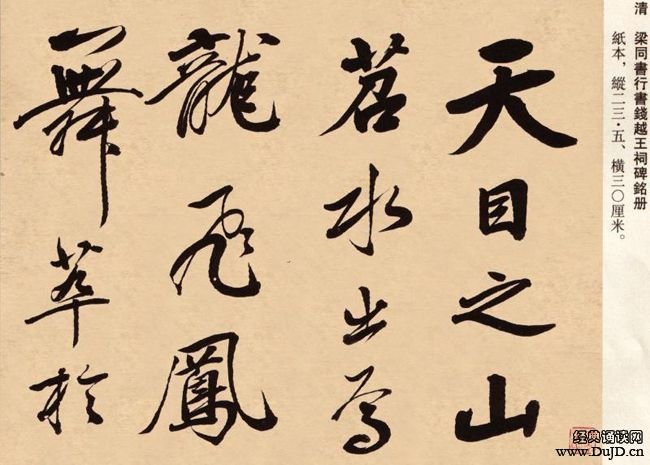 清 梁同書行書錢越王祠碑銘册
紙本，縱二三·五、橫三〇厘米。
天目之山
苕水出焉
龍飛鳳
舞萃於
经典诵读网
www.DuJD.cn